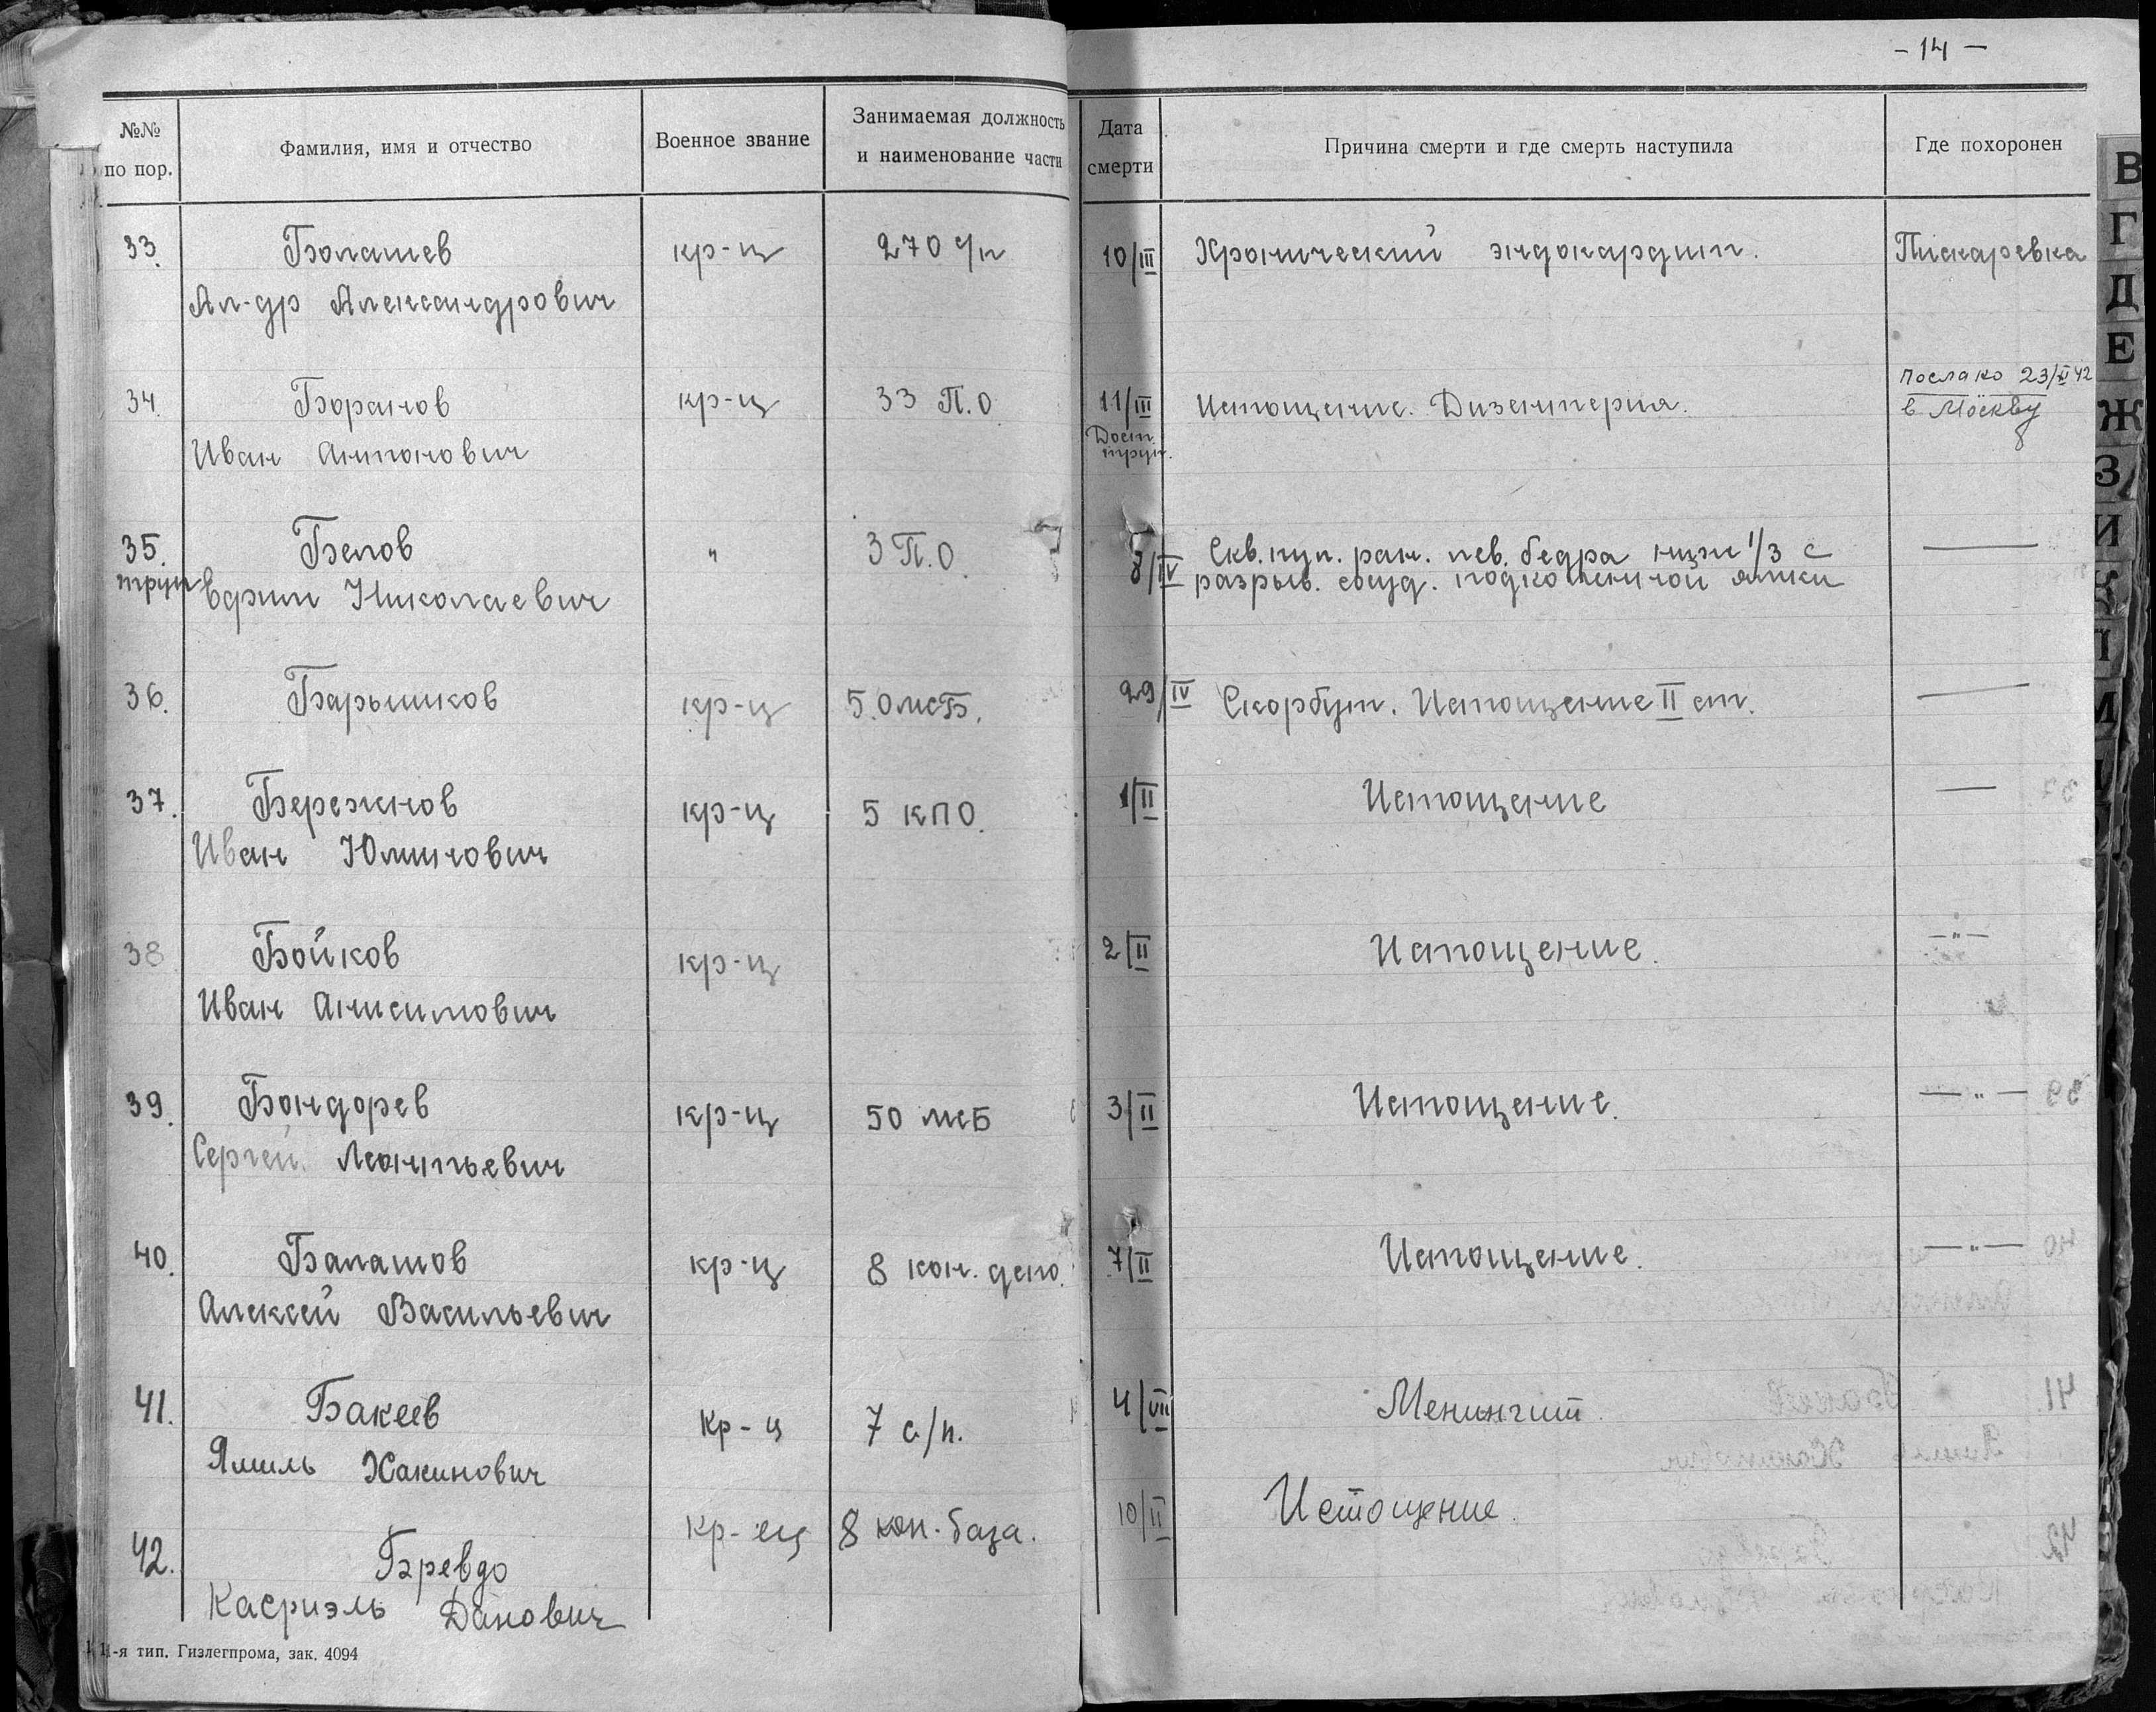 - 14 -
№№ по пор.
Фамилия, имя и отчество
Военное звание
Занимаемая должность и наименование части
Дата смерти
Причина смерти и где смерть наступила
Где похоронен
33. Болашев кр-ц 270 с/п 10/III Хронический эндокардит. Пискаревка
Ал-др Александрович
34. Боранов кр-ц 33 П.О 11/III Истощение. Дизентерия. 23/XI 42
Иван Антонович Дост. труп. в Москву
35. Белов " 3 П.О. 8/IV Скв. пул. ран. лев. бедра нижн 1/3 с
труп Николаевич разрыв. сосуд. подколенной ямки
36. Барышков кр-ц 5.ОМСБ. 29/IV Скорбут. Истощение II ст. —
37. Бережнов кр-ц 5 КПО. 1/II Истощение —
Иван
38 Бойков кр-ц 2/II Истощение. —"—
Иван Анисимович
39. Бондорев кр-ц 50 мсБ 3/II Истощение. —"—
Сергей Леонтьевич
40. Балашов кр-ц 8 кон. депо. 7/II Истощение. —"—
Алексей Васильевич
41. Бакеев Кр-ц 7 с/п. 4/VII Менингит
Ямиль Хакинович
42. Бревдо Кр-ец 8 кон. база. 10/II Истощение.
Касриэль Данович
11-я тип. Гизлегпрома, зак. 4094
В
Г
Д
Е
Ж
З
И
К
Л
М